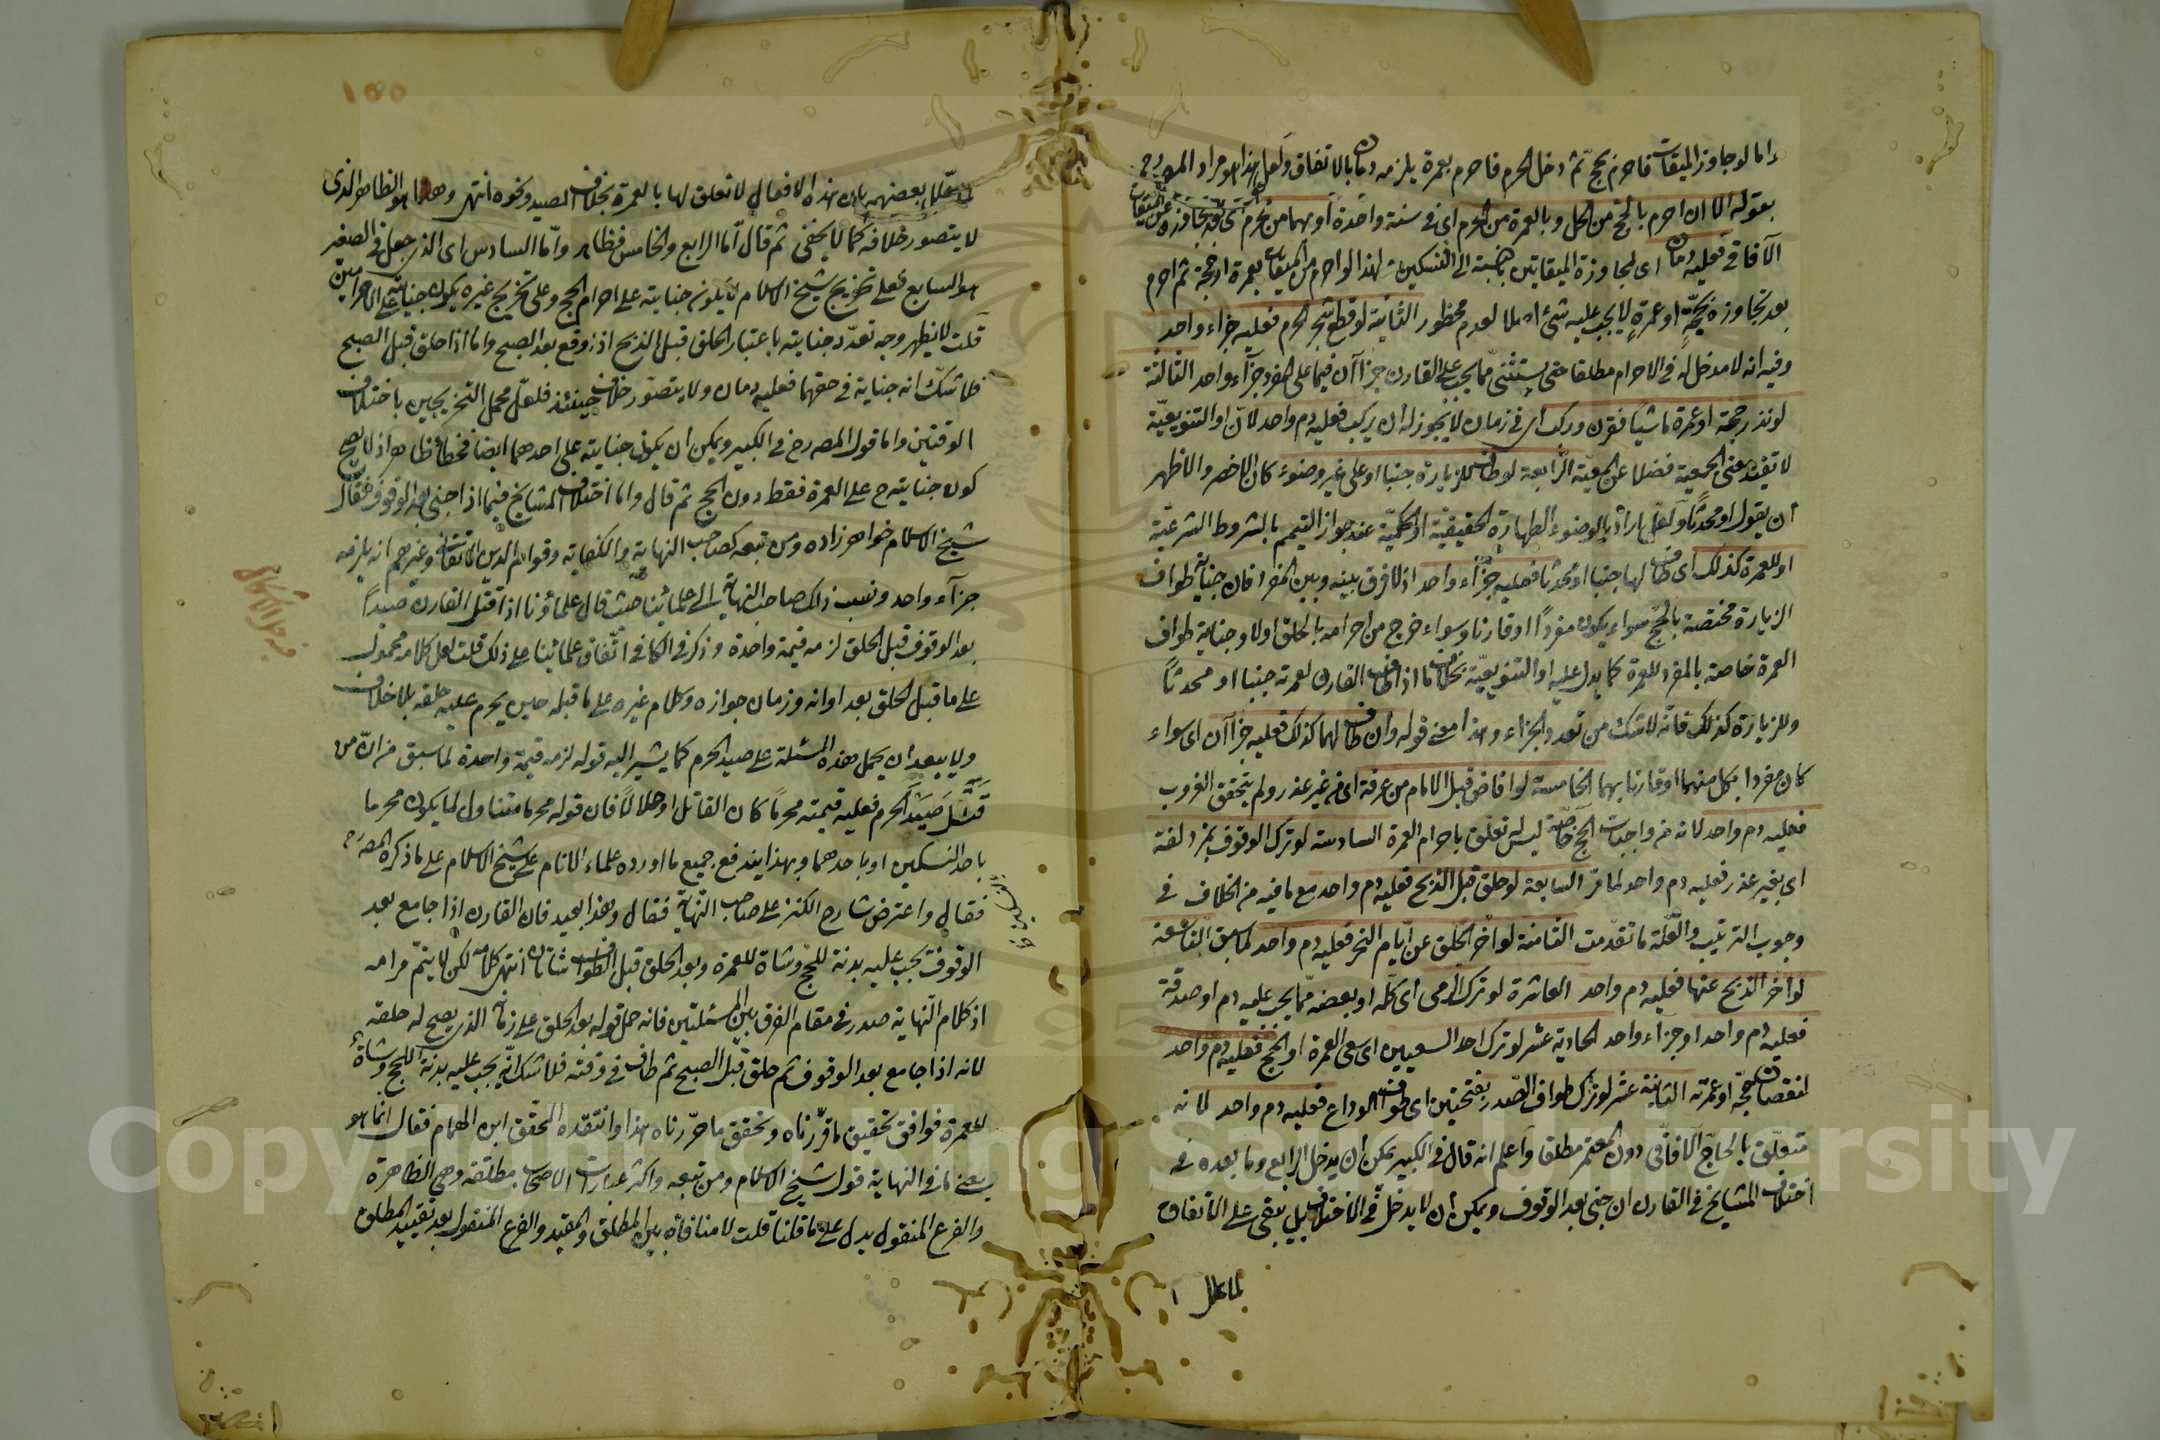 واما لوجاوز الميقات فاحرم بحج ثم دخل الحرم فاحرم بعمرة يلزمه دمان بالاتفاق ولعل هذا هو مراد المصرح
بقوله الا ان احرم بالحج من الحل وبالعمرة من الحرم اى فى سنة واحدة او بهما من الحرم اى بعد تجاوزه عن الميقات
الآفاقى فعليه دمان اى لمجاوزة الميقاتين بالنسبة الى النسكين لهذا لو احرم من الميقات بعمرة او حجة ثم احرم
بعد تجاوزه بحجة او عمرة لا يجب عليه شئ اصلا لعدم محظور الثانية لو قطع شجر الحرم فعليه جزاء واحد
وفيه انه لا مدخل له فى الاحرام مطلقا حتى يستثنى مما يجب على القارن جزاآن فيما على المفرد جزآء واحد الثالثة
لو نذر حجة او عمرة ماشيا فقرن وركب اى فى زمان لا يجوز له ان يركب فعليه دم واحد لان او التنويعية
لا تفيد معنى الجمعية فضلا عن المعية الرابعة لو طاف للزيارة جنبا او على غير وضوء كان الاخصر والاظهر
ان يقول او محدثا ولعل اراد بالوضوء الطهارة الحقيقية او الحكمية عند جواز التيمم بالشروط الشرعية
او للعمرة كذلك اى طاف لها جنبا او محدثا فعليه جزآء واحد اذ لا فرق بينه وبين المفرد فان جناية طواف
الزيارة مختصة بالحج سواء يكون مفردا او قارنا وسواء خرج من احرامه بالحلق اولا وجناية طواف
العمرة خاصة بالمفرد للعمرة كما يدل عليه او التنويعية بخلاف ما اذا طاف القارن لعمرته جنبا او محدثا
وللزيارة كذلك فانه لا شك من تعدد الجزاء وهذا معنى قوله وان طاف لهما كذلك فعليه جزاآن اى سواء
كان مفردا بكل منهما او قارنا بهما الخامسة لو افاض قبل الامام من عرفة اى من غير عذر ولم يتحقق الغروب
فعليه دم واحد لانه من واجبات الحج خاصة ليس له تعلق باحرام العمرة السادسة لو ترك الوقوف بمزدلفة
اى بغير عذر فعليه دم واحد لما مر السابعة لو حلق قبل الذبح فعليه دم واحد مع ما فيه من الخلاف فى
وجوب الترتيب والعلة ما تقدمت الثامنة لو اخر الحلق عن ايام النحر فعليه دم واحد لما سبق التاسعة
لو اخر الذبح عنها فعليه دم واحد العاشرة لو ترك الرمى اى كله او بعضه مما يجب عليه دم او صدقة
فعليه دم واحد او جزآء واحد الحادية عشر لو ترك احد السعيين اى سعى العمرة او الحج فعليه دم واحد
لنقصان حجه او عمرته الثانية عشر لو ترك طواف الصدر بفتحتين اى طواف الوداع فعليه دم واحد لانه
متعلق بالحاج الآفاقى دون المعتمر مطلقا واعلم انه قال فى الكبير يمكن ان يدخل الرابع وما بعده فى
اختلاف المشايخ فى القارن ان جنى بعد الوقوف ويمكن ان لا يدخل فى الاختلاف بل يبقى على الاتفاق
لما علل
١٥٥
لما علل بعضهم بان هذه الافعال لا تعلق لها بالعمرة بخلاف الصيد ونحوه انتهى وهذا هو الظاهر الذى
لا يتصور خلافه كما لا يخفى ثم قال اما الرابع والخامس فظاهر واما السادس اى الذى جعل فى الصغير
هو السابع فعلى تخريج شيخ الاسلام يكون جنايته على احرام الحج وعلى تخريج غيره يكون جنايته على الاحرامين
قلت لا يظهر وجه تعدد جنايته باعتبار الحلق قبل الذبح اذ وقع بعد الصبح واما اذا حلق قبل الصبح
فلا شك انه جناية فى حقهما فعليه دمان ولا يتصور خلاف حينئذ فلعل محمل التخريجين باختلاف
الوقتين واما قول المصرح فى الكبير ويمكن ان يكون جنايته على احدهما ايضا فخطأ ظاهر اذ لا يصح
كون جنايته ح على العمرة فقط دون الحج ثم قال واما اختلاف المشايخ فيما اذا جنى بعد الوقوف فقال
شيخ الاسلام خواهر زاده ومن تبعه كصاحب النهاية والكفاية وقوام الدين الاتقانى وغيرهم انه يلزمه
جزآء واحد ونسب ذلك صاحب النهاية الى علمائنا حيث قال علماؤنا اذا قتل القارن صيدا
بعد الوقوف قبل الحلق لزمه قيمة واحدة وذكر فى الكافى اتفاق علمائنا على ذلك قلت لعل كلامه محمول
على ما قبل الحلق بعد اوانه وزمان جوازه وكلام غيره على ما قبله حين يحرم عليه حلقه بلا خلاف
ولا يبعد ان يحمل هذه المسئلة على صيد الحرم كما يشير اليه قوله لزمه قيمة واحدة لما سبق من ان من
قتل صيد الحرم فعليه قيمته محرما كان القاتل او حلالا فان قوله محرما متناول لما يكون محرما
باحد النسكين او باحدهما وبهذا يندفع جميع ما اورده علماء الانام على شيخ الاسلام على ما ذكره المصرح
فقال واعترض شارح الكنز على صاحب النهاية فقال وهذا بعيد فان القارن اذا جامع بعد
الوقوف يجب عليه بدنة للحج وشاة للعمرة وبعد الحلق قبل الطواف شاتان انتهى كلامه لكن لا يتم مرامه
اذ كلام النهاية صدر فى مقام الفرق بين المسئلتين فانه حمل قوله بعد الحلق على زمانه الذى يصح له حلقه
لانه اذا جامع بعد الوقوف ثم حلق قبل الصبح ثم طاف فى وقته فلا شك انه يجب عليه بدنة للحج وشاة
للعمرة فوافق تحقيق ما قررناه وتحقق ما حررناه هذا وانتقده المحقق ابن الهمام فقال انما هو
يعنى ما فى النهاية قول شيخ الاسلام ومن تبعه واكثر عبارات الاصحاب مطلقة وهى الظاهرة
والفرع المنقول يدل على ما قلنا قلت لا منافاة بين المطلق والمقيد والفرع المنقول بعد تقييد المطلق
Copyright © King Saud University